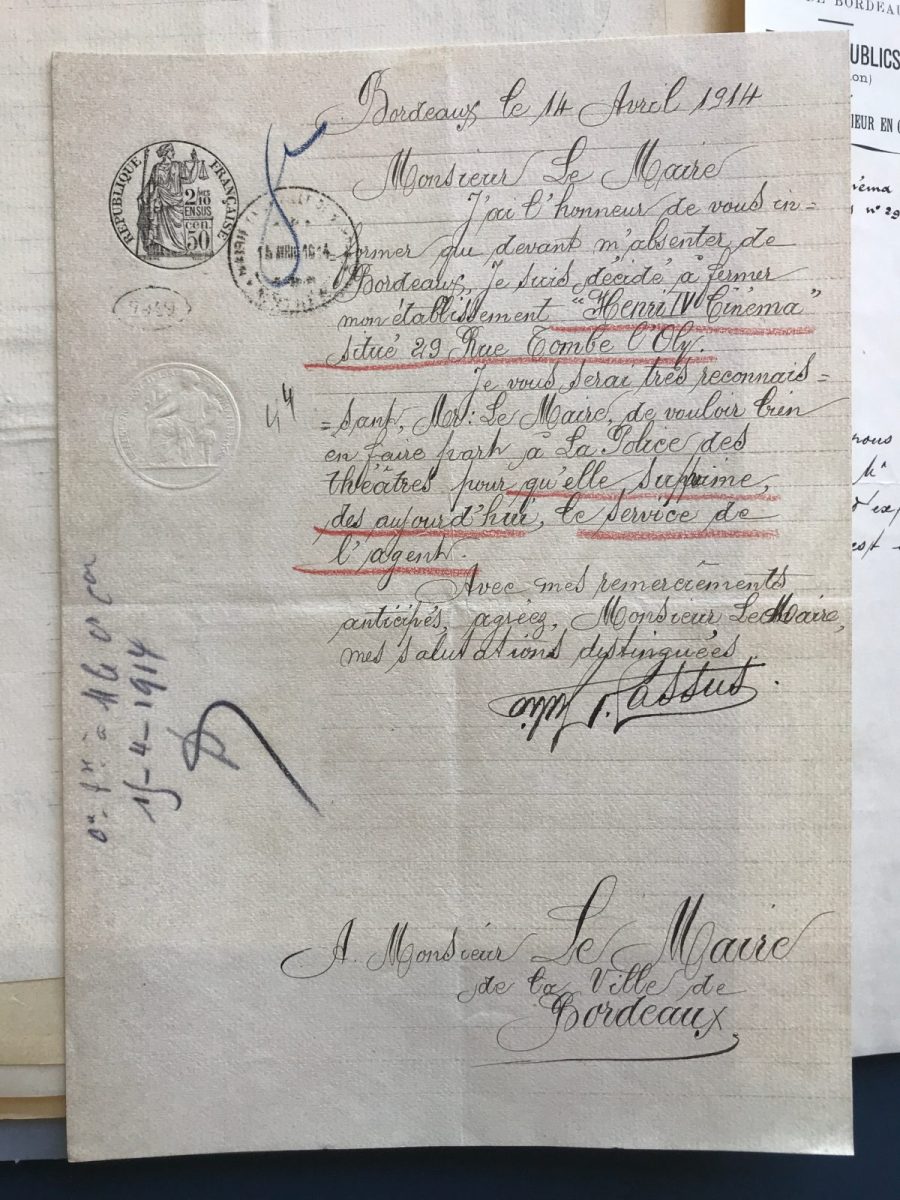 Bordeaux le 14 Avril 1914
RÉPUBLIQUE FRANÇAISE
2/10
EN SUS
cen.
50
15 AVRIL 1914
Monsieur Le Maire
J'ai l'honneur de vous in=
former qu devant m'absenter de
Bordeaux, Je suis décidé à fermer
mon établissement "Henri IV Cinéma"
situé 29 Rue Tombe l'Oly.
Je vous serai très reconnais=
=sant, Mr: Le Maire, de vouloir bien
en faire part à La Police des
théâtres pour qu'elle suprime,
des aujourd'hui, le service de
l'agent.
Avec mes remerciements
anticipés, agréez, Monsieur Le Maire,
mes salutations distinguées
Lassus
44
15-4-1914
A. Monsieur Le Maire
de la Ville de
Bordeaux
DE BORDEAU
UBLICS
on)
IEUR EN
néma
n° 29